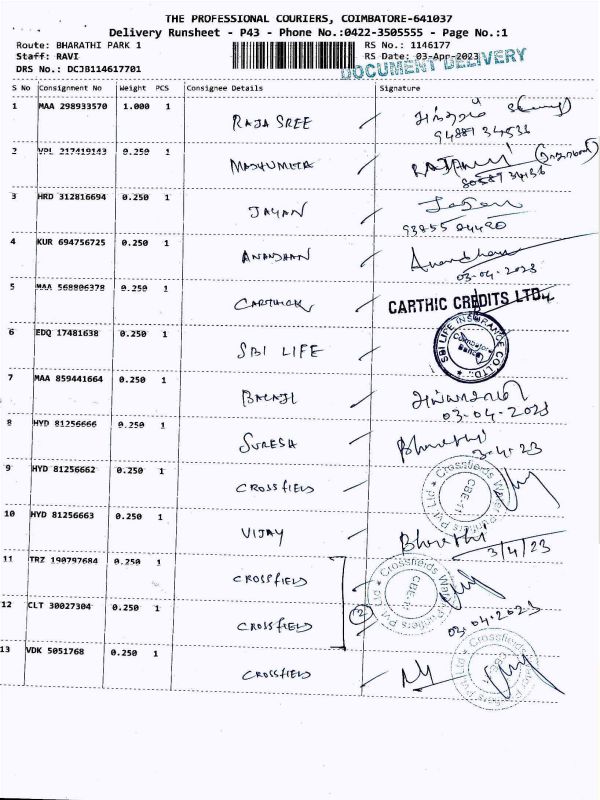 THE PROFESSIONAL COURIERS, COIMBATORE-641037
Delivery Runsheet - P43 - Phone No.:0422-3505555 - Page No.:1
Route: BHARATHI PARK 1 RS No.: 1146177
Staff: RAVI RS Date: 03-Apr-2023
DRS No.: DCJB114617701
DOCUMENT DELIVERY
S No Consignment No Weight PCS Consignee Details Signature
1 MAA 298933570 1.000 1 RAJA SREE
94887 34536
2 VPL 217419143 0.250 1 MADHUMITA
80587 34136
3 HRD 312816694 0.250 1 JAYAN
93855 04420
4 KUR 694756725 0.250 1 ANANDHAN Anandhan
03-04-2023
5 MAA 568806378 0.250 1 CARTHICK CARTHIC CREDITS LTD
6 EDQ 17481638 0.250 1 SBI LIFE SBI LIFE INSURANCE CO LTD
7 MAA 859441664 0.250 1 BALAJI
03-04-2023
8 HYD 81256666 0.250 1 SURESH Bharathi
3-4-23
9 HYD 81256662 0.250 1 CROSSFIELD Crossfields Pvt Ltd CBE-11
10 HYD 81256663 0.250 1 VIJAY Bharathi
3/4/23
11 TRZ 190797684 0.250 1 CROSSFIELD Crossfields Pvt Ltd CBE-11
12 CLT 30027304 0.250 1 CROSSFIELD 2 03-04-2023
13 VDK 5051768 0.250 1 CROSSFIELD Crossfields Pvt Ltd CBE-11